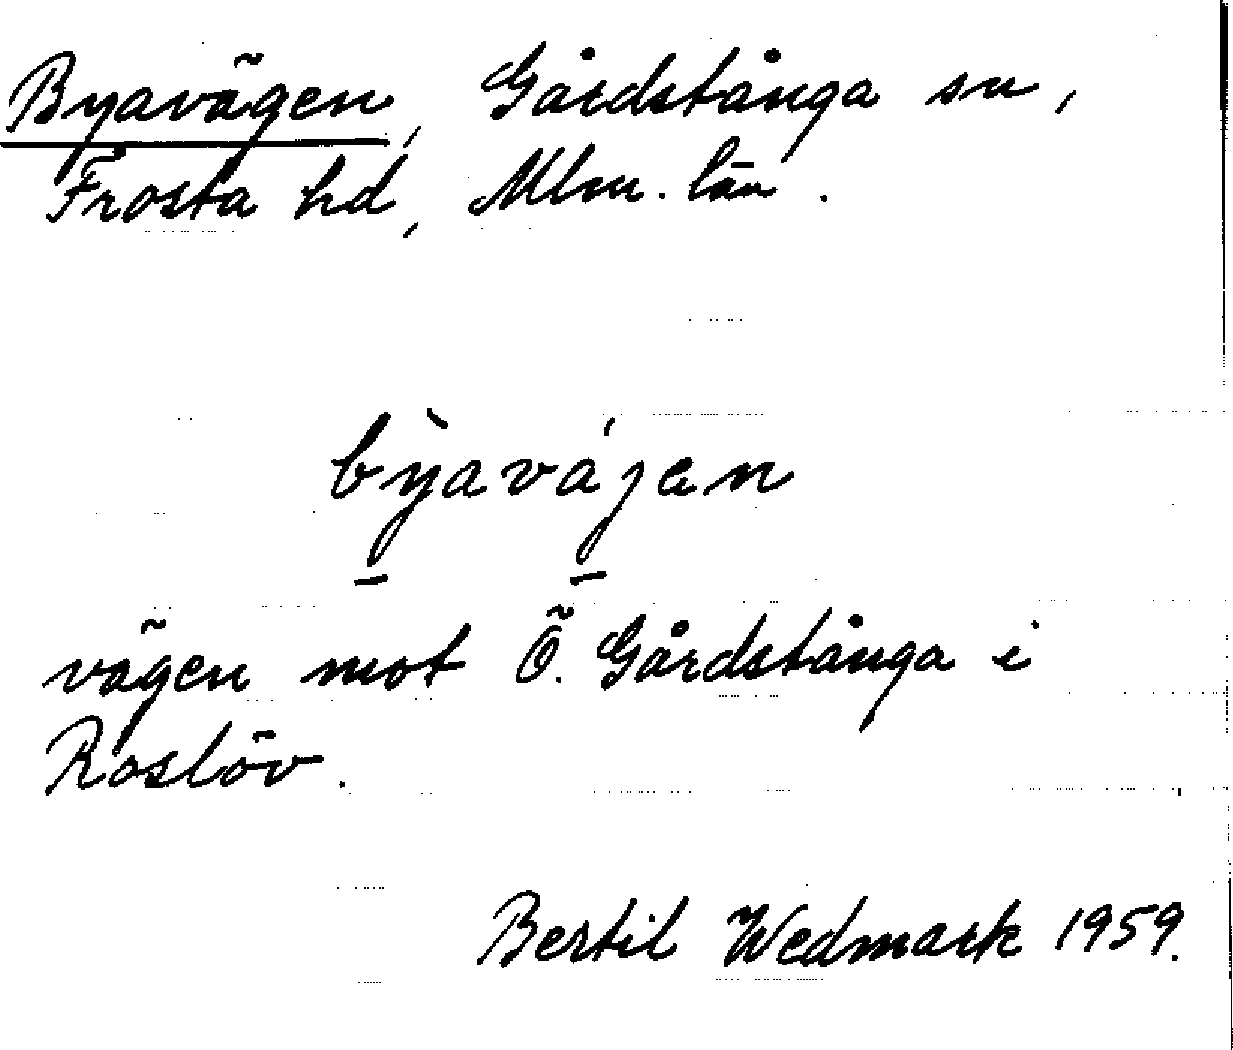 Byavägen, Gårdstånga sn,
Frosta hd, Mlm. län.
bỳavájen
vägen mot Ö. Gårdstånga i
Roslöv.
Bertil Wedmark 1959.